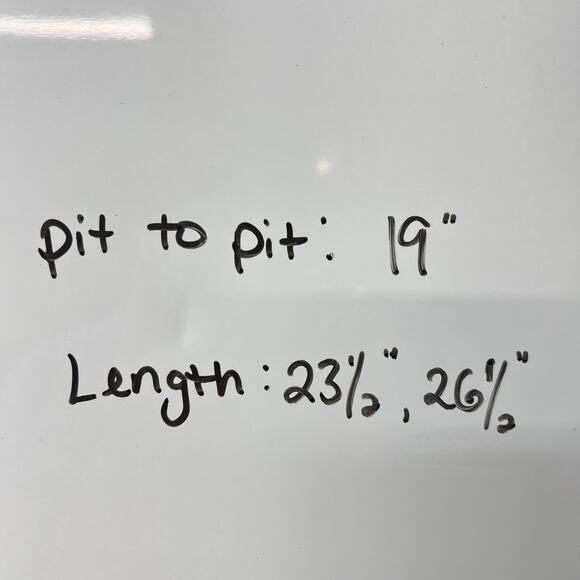 pit to pit: 19"
Length: 23 1/2", 26 1/2"